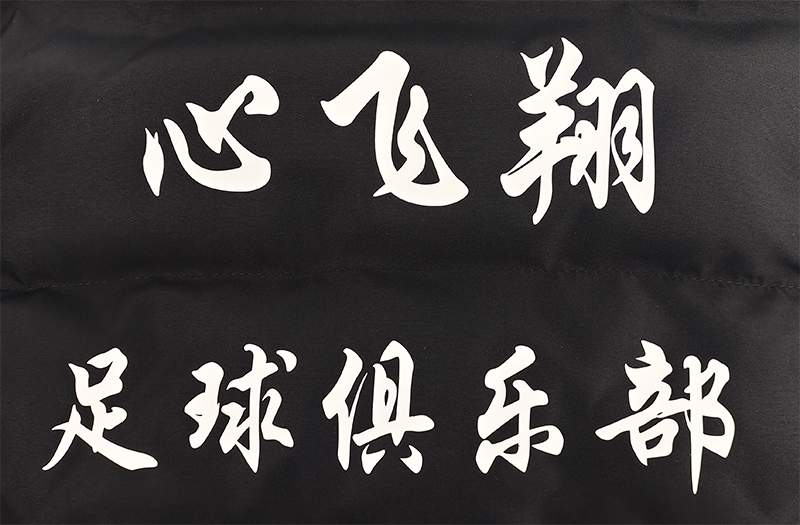 心飞翔
足球俱乐部